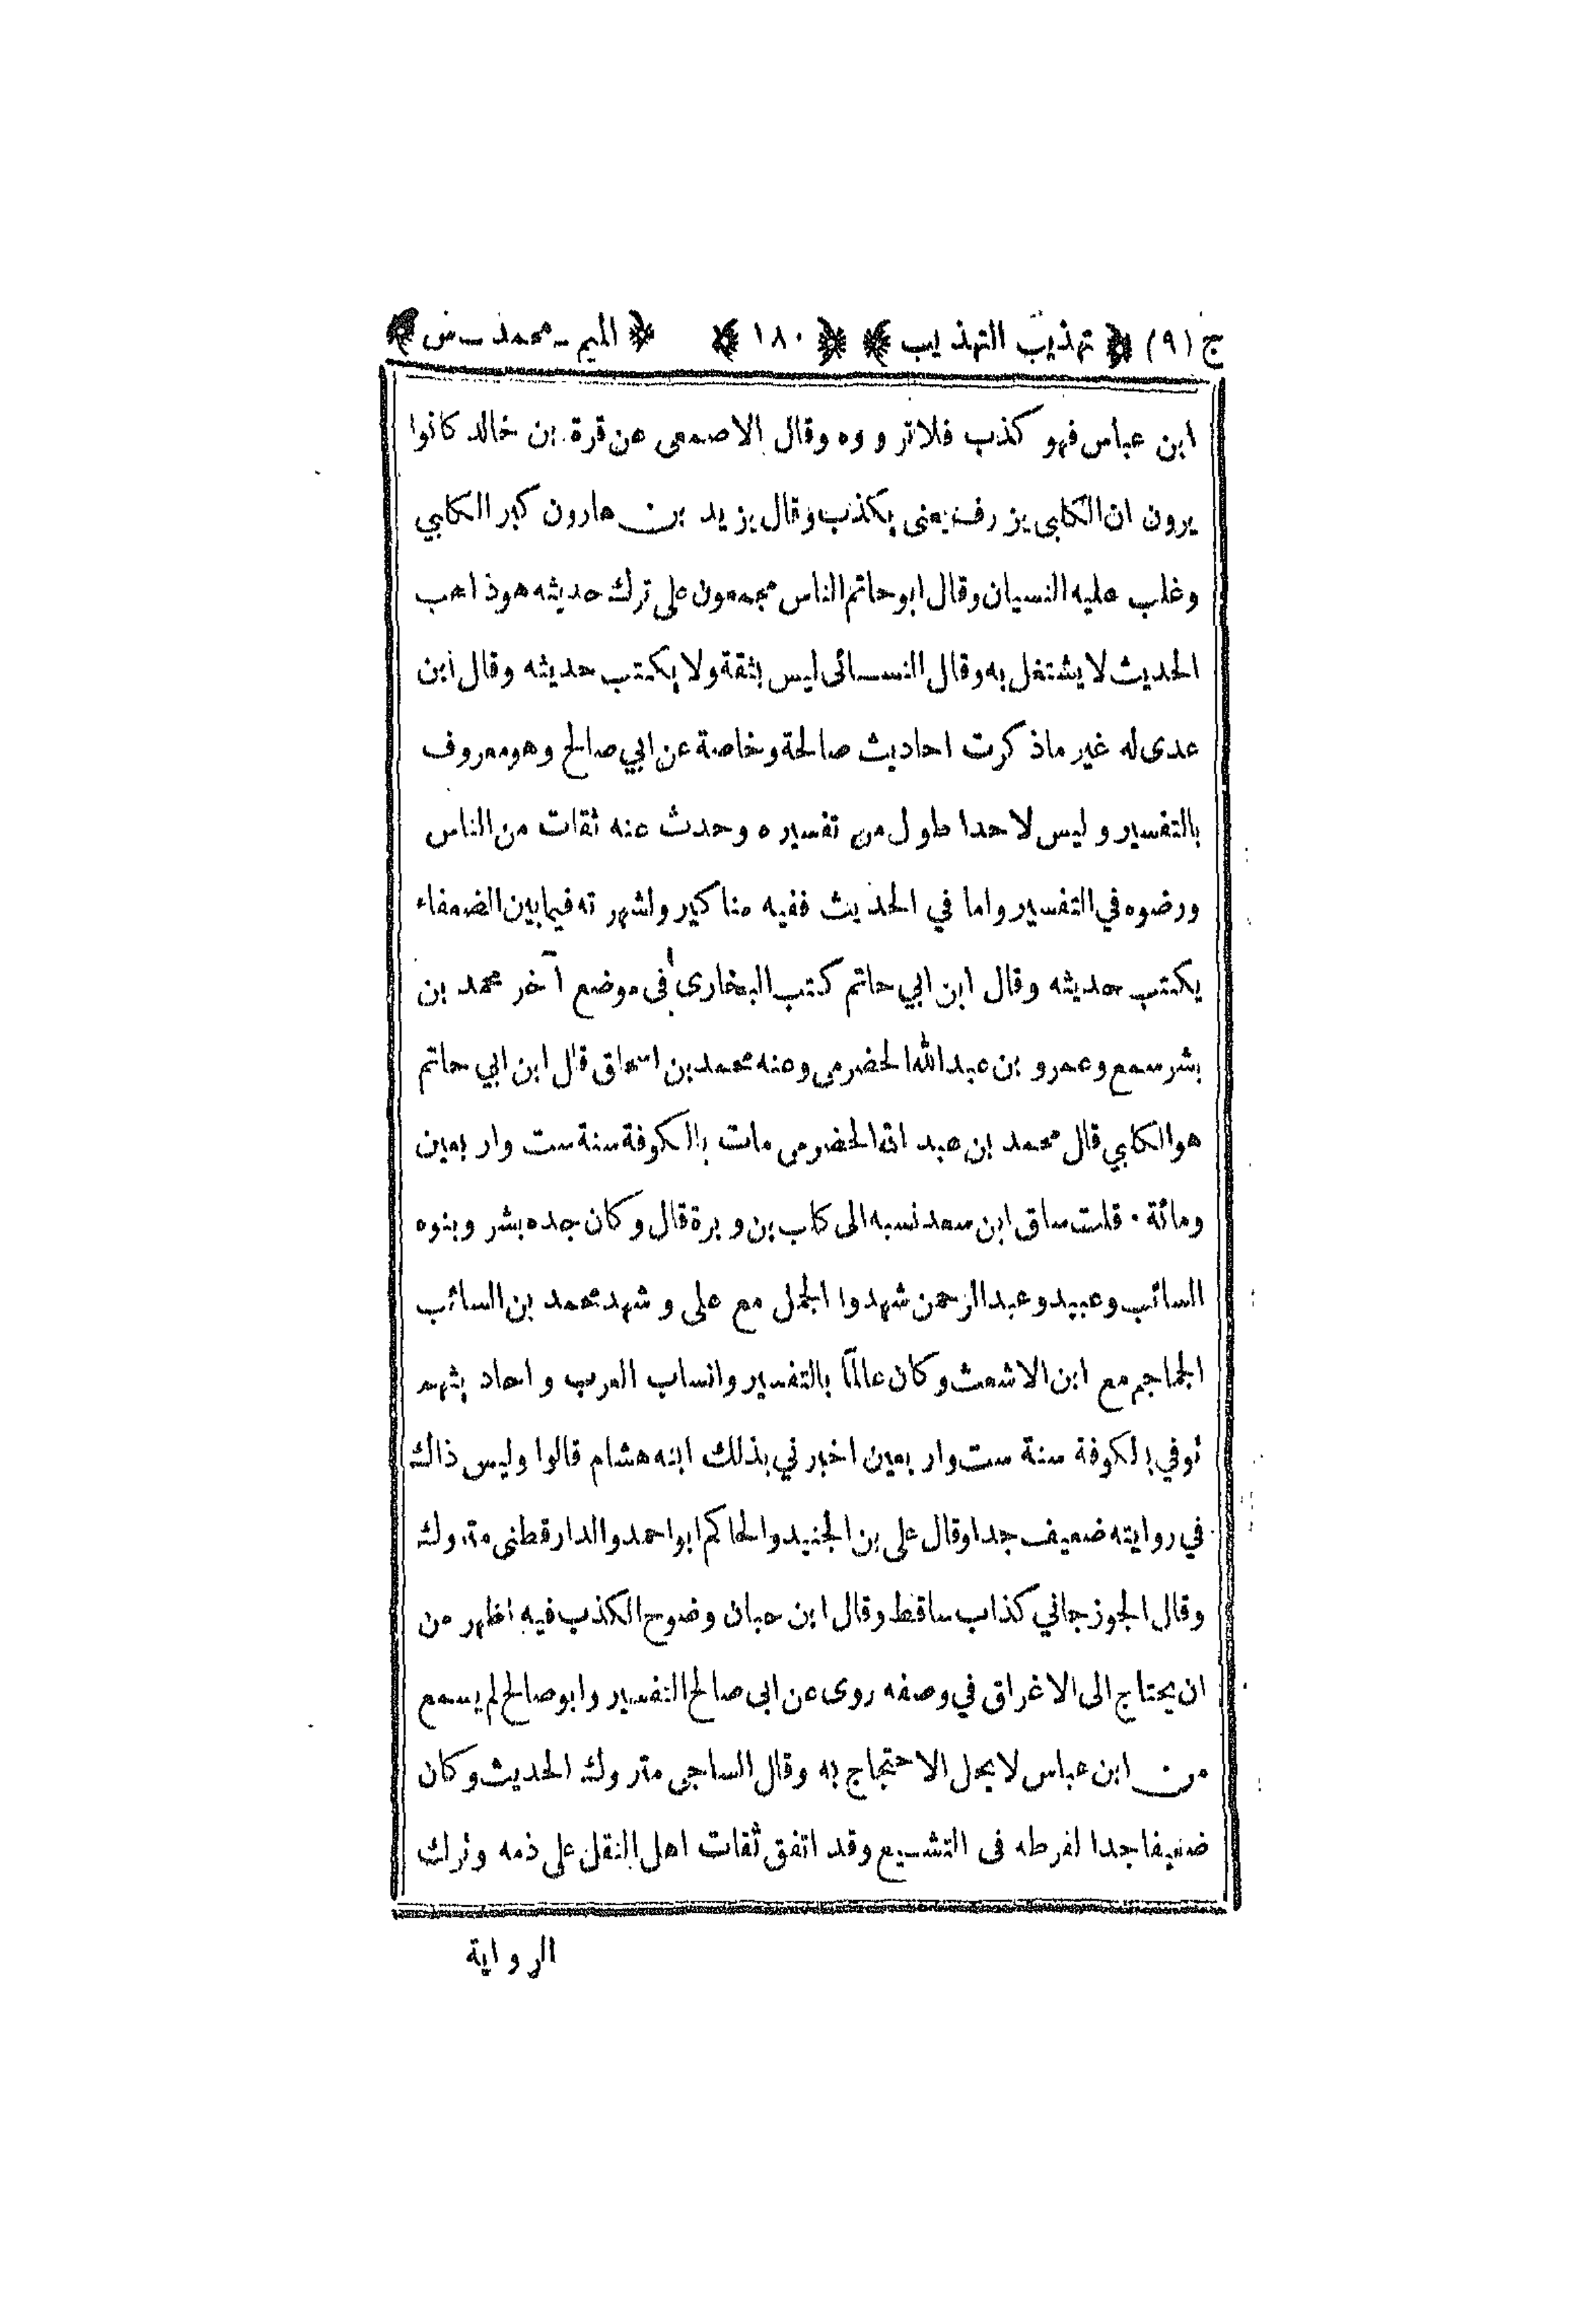 ج (٩) ﴿ تهذيب التهذيب ﴾ ﴿ ١٨٠ ﴾ ﴿ الميم - محمد - س ﴾
ابن عباس فهو كذب فلا ترووه وقال الاصمعى عن قرة بن خالد كانوا
يرون ان الكلبى يزرف يعنى يكذب وقال يزيد بن هارون كبر الكلبي
وغلب عليه النسيان وقال ابو حاتم الناس مجمعون على ترك حديثه هو ذاهب
الحديث لا يشتغل به وقال النسائى ليس بثقة ولا يكتب حديثه وقال ابن
عدى له غير ما ذكرت احاديث صالحة وخاصة عن ابي صالح وهو معروف
بالتفسير وليس لاحد اطول من تفسيره وحدث عنه ثقات من الناس
ورضوه في التفسير واما في الحديث ففيه مناكير واشهر ته فيما بين الضعفاء
يكتب حديثه وقال ابن ابي حاتم كتب البخارى فى موضع آخر محمد بن
بشر سمع وعمرو بن عبد الله الحضرمى وعنه محمد بن اسحاق قال ابن ابي حاتم
هو الكلبي قال محمد بن عبد الله الحضرمى مات بالكوفة سنة ست واربعين
ومائة ٠ قلت ساق ابن سعد نسبه الى كلب بن وبرة قال وكان جده بشر وبنوه
السائب وعبيد وعبد الرحمن شهدوا الجمل مع على وشهد محمد بن السائب
الجماجم مع ابن الاشعث وكان عالمًا بالتفسير وانساب العرب واحاديثهم
توفي بالكوفة سنة ست واربعين اخبرني بذلك ابنه هشام قالوا وليس ذاك
في روايته ضعيف جدا وقال على بن الجنيد والحاكم ابو احمد والدارقطنى متروك
وقال الجوزجاني كذاب ساقط وقال ابن حبان وضوح الكذب فيه اظهر من
ان يحتاج الى الاغراق في وصفه روى عن ابى صالح التفسير وابو صالح لم يسمع
من ابن عباس لا يحل الاحتجاج به وقال الساجى متروك الحديث وكان
ضعيفا جدا لفرطه فى التشيع وقد اتفق ثقات اهل النقل على ذمه وترك
الرواية